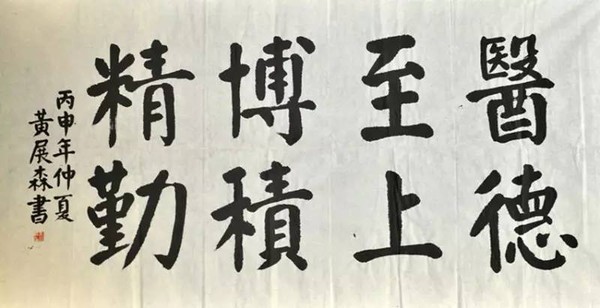 醫德
至上
博積
精勤
丙申年仲夏
黃展森書